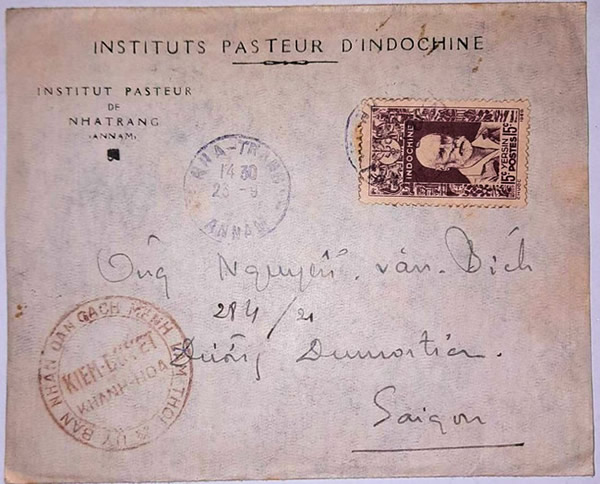 INSTITUTS PASTEUR D'INDOCHINE
INSTITUT PASTEUR
DE
NHATRANG
(ANNAM)
INDOCHINE
15c YERSIN 15c
POSTES
NHA-TRANG
14 30
23 -9
ANNAM
Ông Nguyễn. văn. Bích
284/21
Đường Dumortier.
Saigon
ỦY BAN NHÂN DÂN CÁCH MỆNH LÂM THỜI
KIỂM-DUYỆT
KHÁNH-HÒA